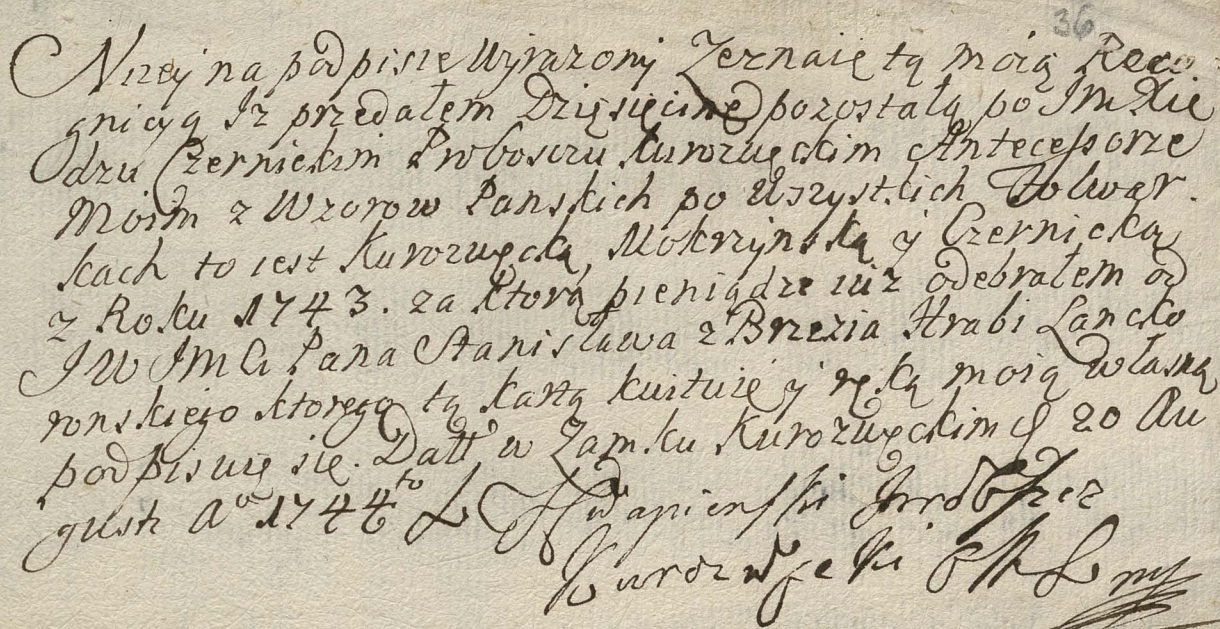 36
Niżey na podpisie Wyrazony Zeznaię tą moią Reco
gnicyą Iz przedałem Dzięsięcinę pozostałą po Im Xię
dzu Czernickim Proboszczu Kurozwęckim Antecessorze
Moim z Wzorow Panskich po Wszystkich Folwar
kach to iest Kurozwęcką, Mokrzyńską y Czernicką
z Roku 1743. za ktorą pieniądze iuż odebrałem od
JW JMCi Pana Stanisława z Brzezia Hrabi Lancko
ronskiego ktorego tą kartą kwituię y ręką moią własną
podpisuię się. Datt w Zamku Kurozwęckim d 20 Au
gusti Ao 1744to
Kurozwęcki